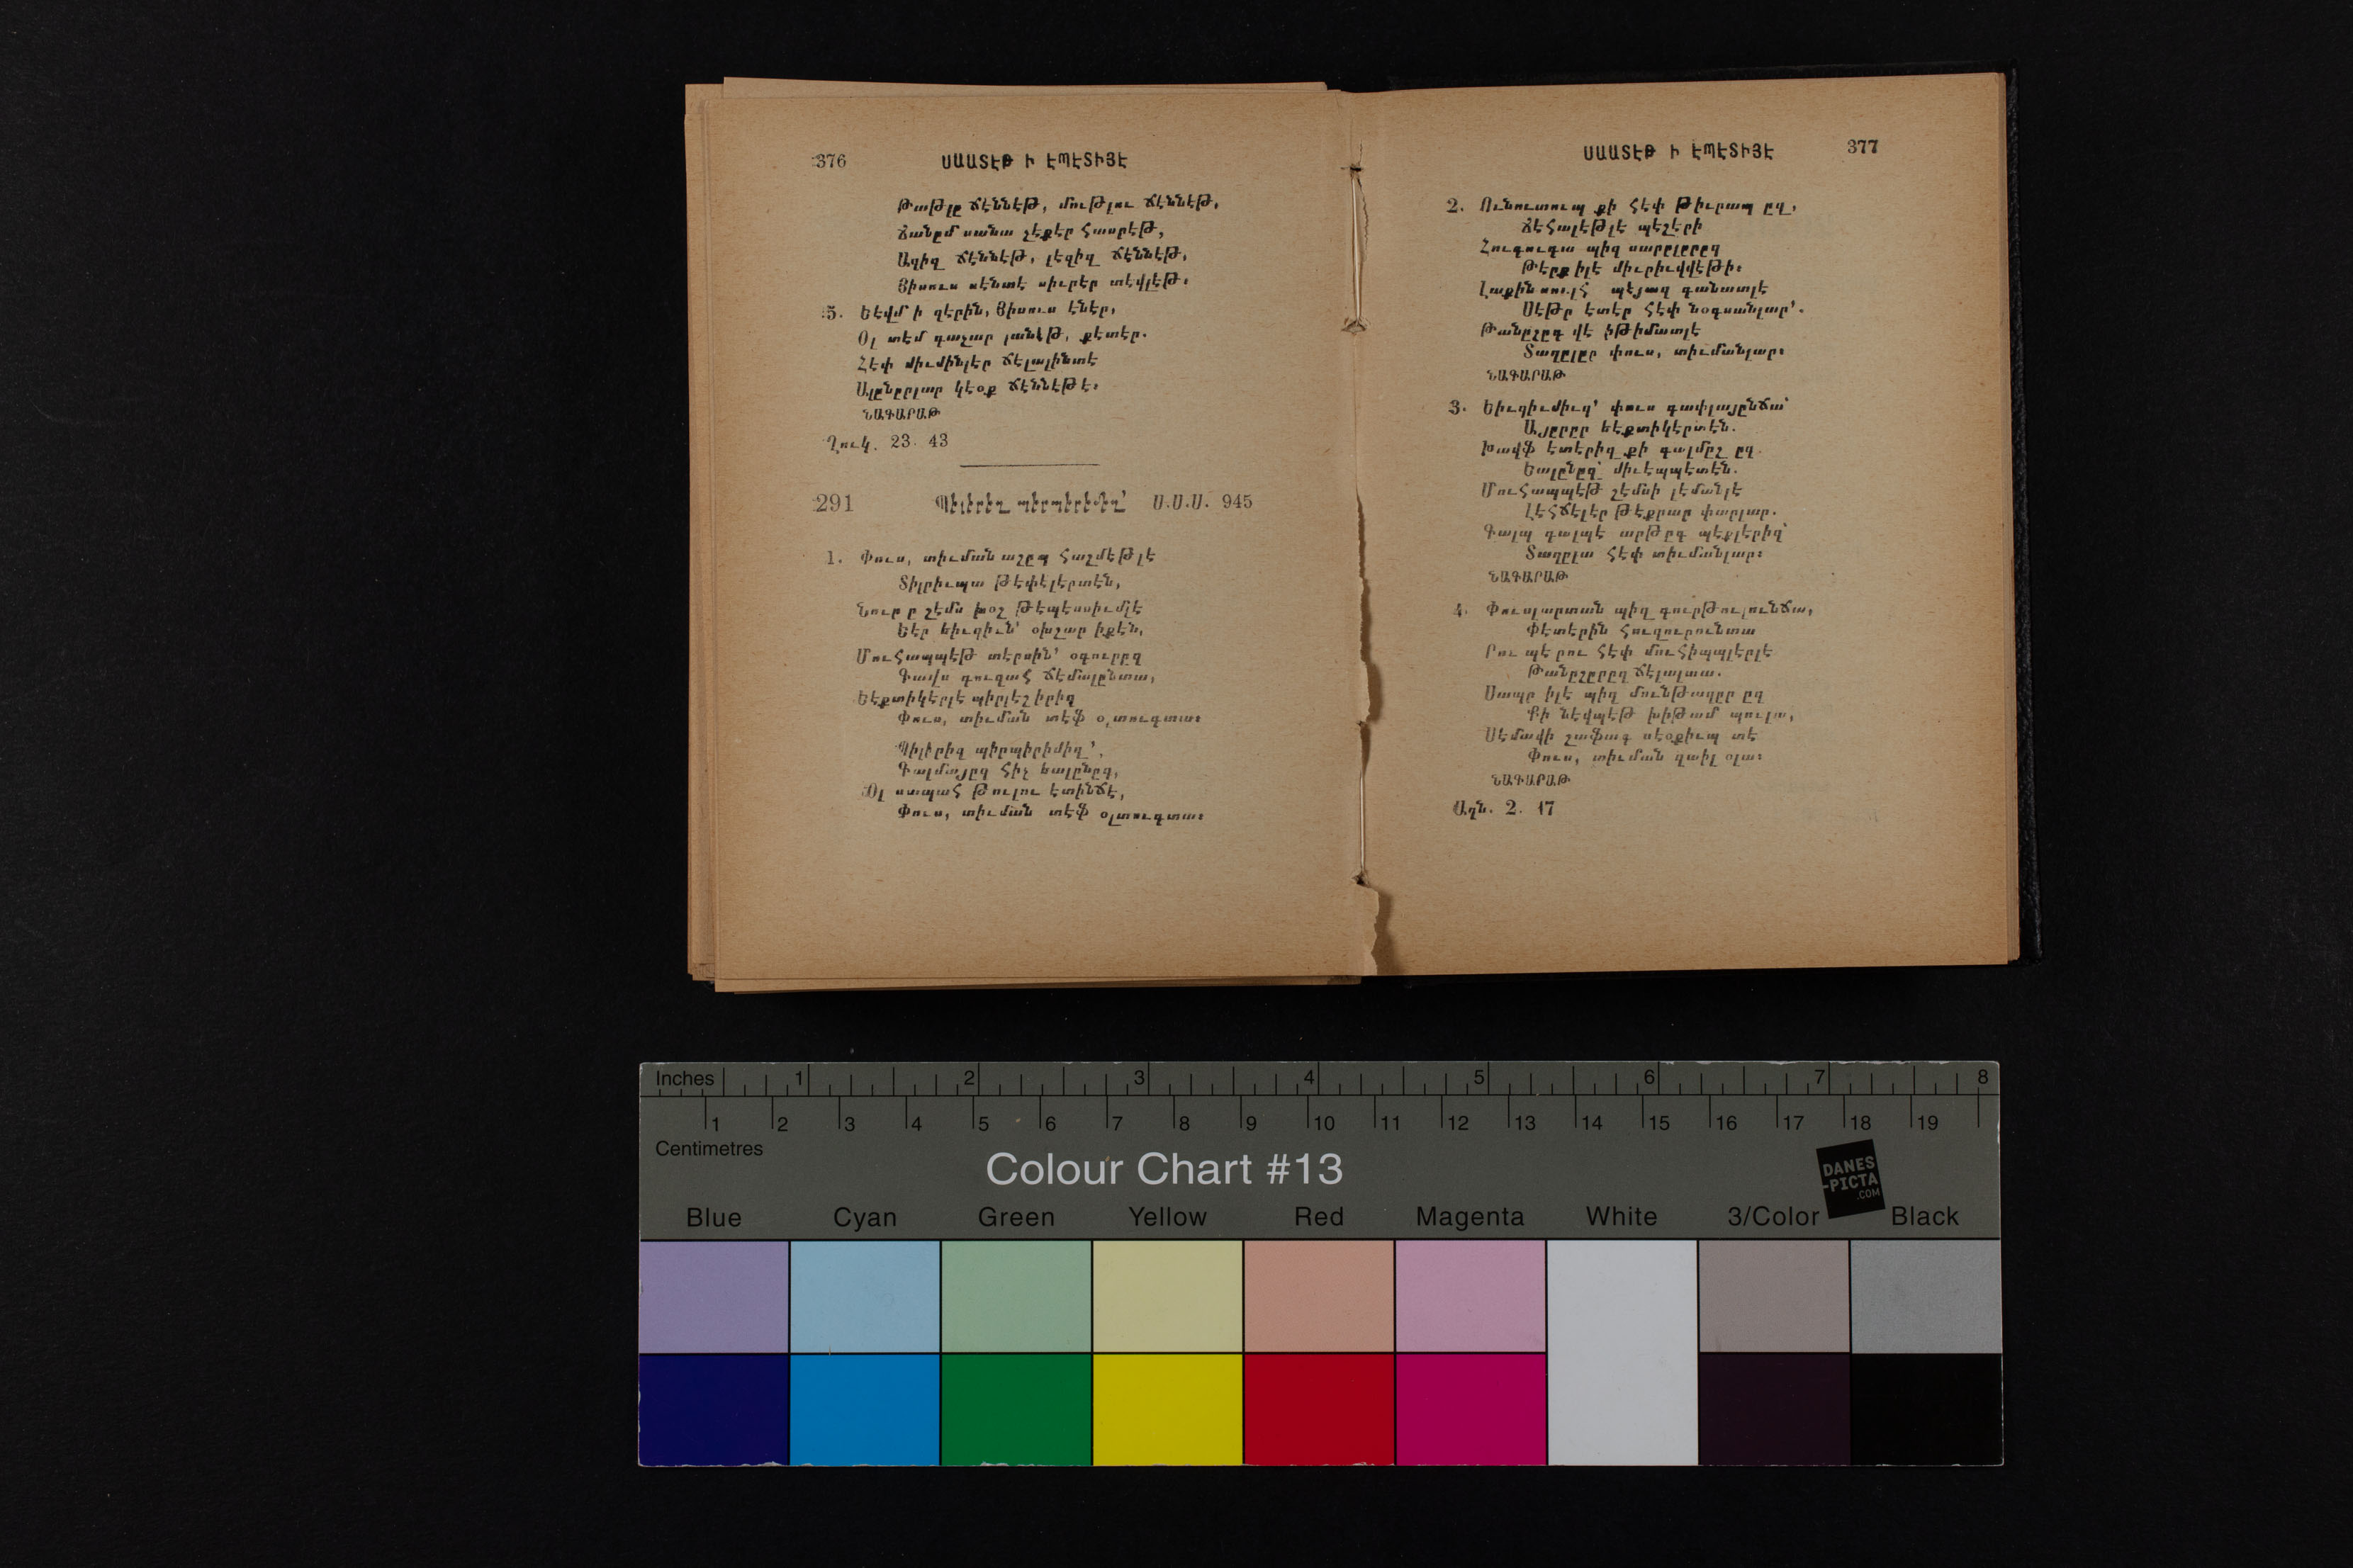 376 ՍԱԱՏԷԹ Ի ԷՊԷՏԻՅԷ
Թաթլը ճէննէթ, մութլու ճէննէթ,
Ճանըմ սանա չէքէր հասրէթ,
Ազիզ ճէննէթ, լեզիզ ճէննէթ,
Յիսուս սէնտէ սիւրէր տէվլէթ։
5. Եէվմ ի զէրին, Յիսուս էնէր,
Օլ տէմ գաչար լանէթ, քէտէր.
Հէփ միւմինլէր ճէլալինտէ
Ալընըրլար կէօք ճէննէթէ։
ՆԱԳԱՐԱԹ
Ղուկ. 23. 43
291 Պիլէրէզ պէրպէրէմէզ՚ Ս.Ս.Ս. 945
1. Փուս, տիւման աշըպ հաշմէթլէ
Տիլրիւպա թէփէլէրտէն,
Նուր ը շէմս խօշ թէպէսսիւմլէ
Եէր եիւզիւն՝ օխշար իքէն,
Մուհապպէթ տէրսին՝ օգուրըզ
Գավս գուզահ ճէմալընտա,
Եէքտիկէրլէ պիրլէշիրիզ
Փուս, տիւման տէֆ օլտուգտա։
Պիլիրիզ պիրպիրիմիզ՚,
Գալմայըզ հիչ եալընըզ,
Օլ սապահ թուլու էտինճէ,
Փուս, տիւման տէֆ օլտուգտա։
ՍԱԱՏԷԹ Ի ԷՊԷՏԻՅԷ 377
2. Ունուտուպ քի հէփ թիւրապ ըզ,
Ճէհալէթլէ պէշէրի
Հուգուգա պիզ սարըլըրըզ
Թէրք իլէ միւրիւվվէթի։
Լաքին սուլհ պէյազ գանատլէ
Սէթր էտէր հէփ նօգսանլար՚.
Թանըշըգ վէ իթիմատլէ
Տաղըլըր փուս, տիւմանլար։
ՆԱԳԱՐԱԹ
3. Եիւզիւմիւզ՚ փուս գափլայընճա՝
Այըրըր եէքտիկէրտէն.
Խավֆ էտէրիզ քի գալմըշ ըզ
Եալընըզ՝ միւէպպէտէն.
Մուհապպէթ շէմսի լէմանլէ
Լէհճէլէր թէքրար փարլար.
Գալպ գալպէ արթըգ պէքլէրիզ՝
Տաղըլա հէփ տիւմանլար։
ՆԱԳԱՐԱԹ
4. Փուսլարտան պիզ գուրթուլունճա,
Փէտէրին հուզուրունտա
Րու պէ րու հէփ մուհիպպլէրլէ
Թանըշըրըզ ճէլալտա.
Սապր իլէ պիզ մունթազըր ըզ
Քի նէվպէթ խիթամ պուլա,
Սէմավի շաֆագ սէօքիւպ տէ
Փուս, տիւման զաիլ օլա։
ՆԱԳԱՐԱԹ
Ազն. 2. 17
Inches 1 2 3 4 5 6 7 8
1 2 3 4 5 6 7 8 9 10 11 12 13 14 15 16 17 18 19
Centimetres
Colour Chart #13
DANES
-PICTA
.COM
Blue Cyan Green Yellow Red Magenta White 3/Color Black